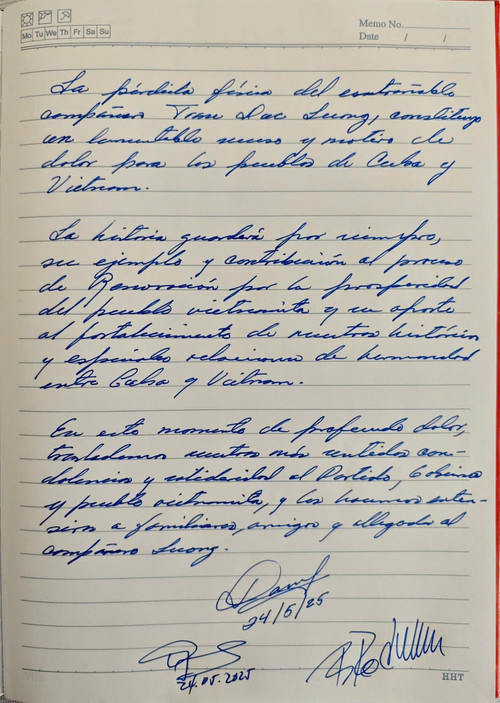 Memo No.
Mo Tu We Th Fr Sa Su
Date / /
La pérdida física del entrañable
compañero Tran Duc Luong, constituye
un lamentable suceso y motivo de
dolor para los pueblos de Cuba y
Vietnam.
La historia guardará por siempre,
su ejemplo y contribución al proceso
de Renovación por la prosperidad
del pueblo vietnamita y su aporte
al fortalecimiento de nuestras históricas
y especiales relaciones de hermandad
entre Cuba y Vietnam.
En este momento de profundo dolor,
trasladamos nuestras más sentidas con-
dolencias y solidaridad al Partido, Gobierno
y pueblo vietnamita, y las hacemos exten-
sivas a familiares, amigos y allegados al
compañero Luong.
24/5/25
24.05.2025
HHT